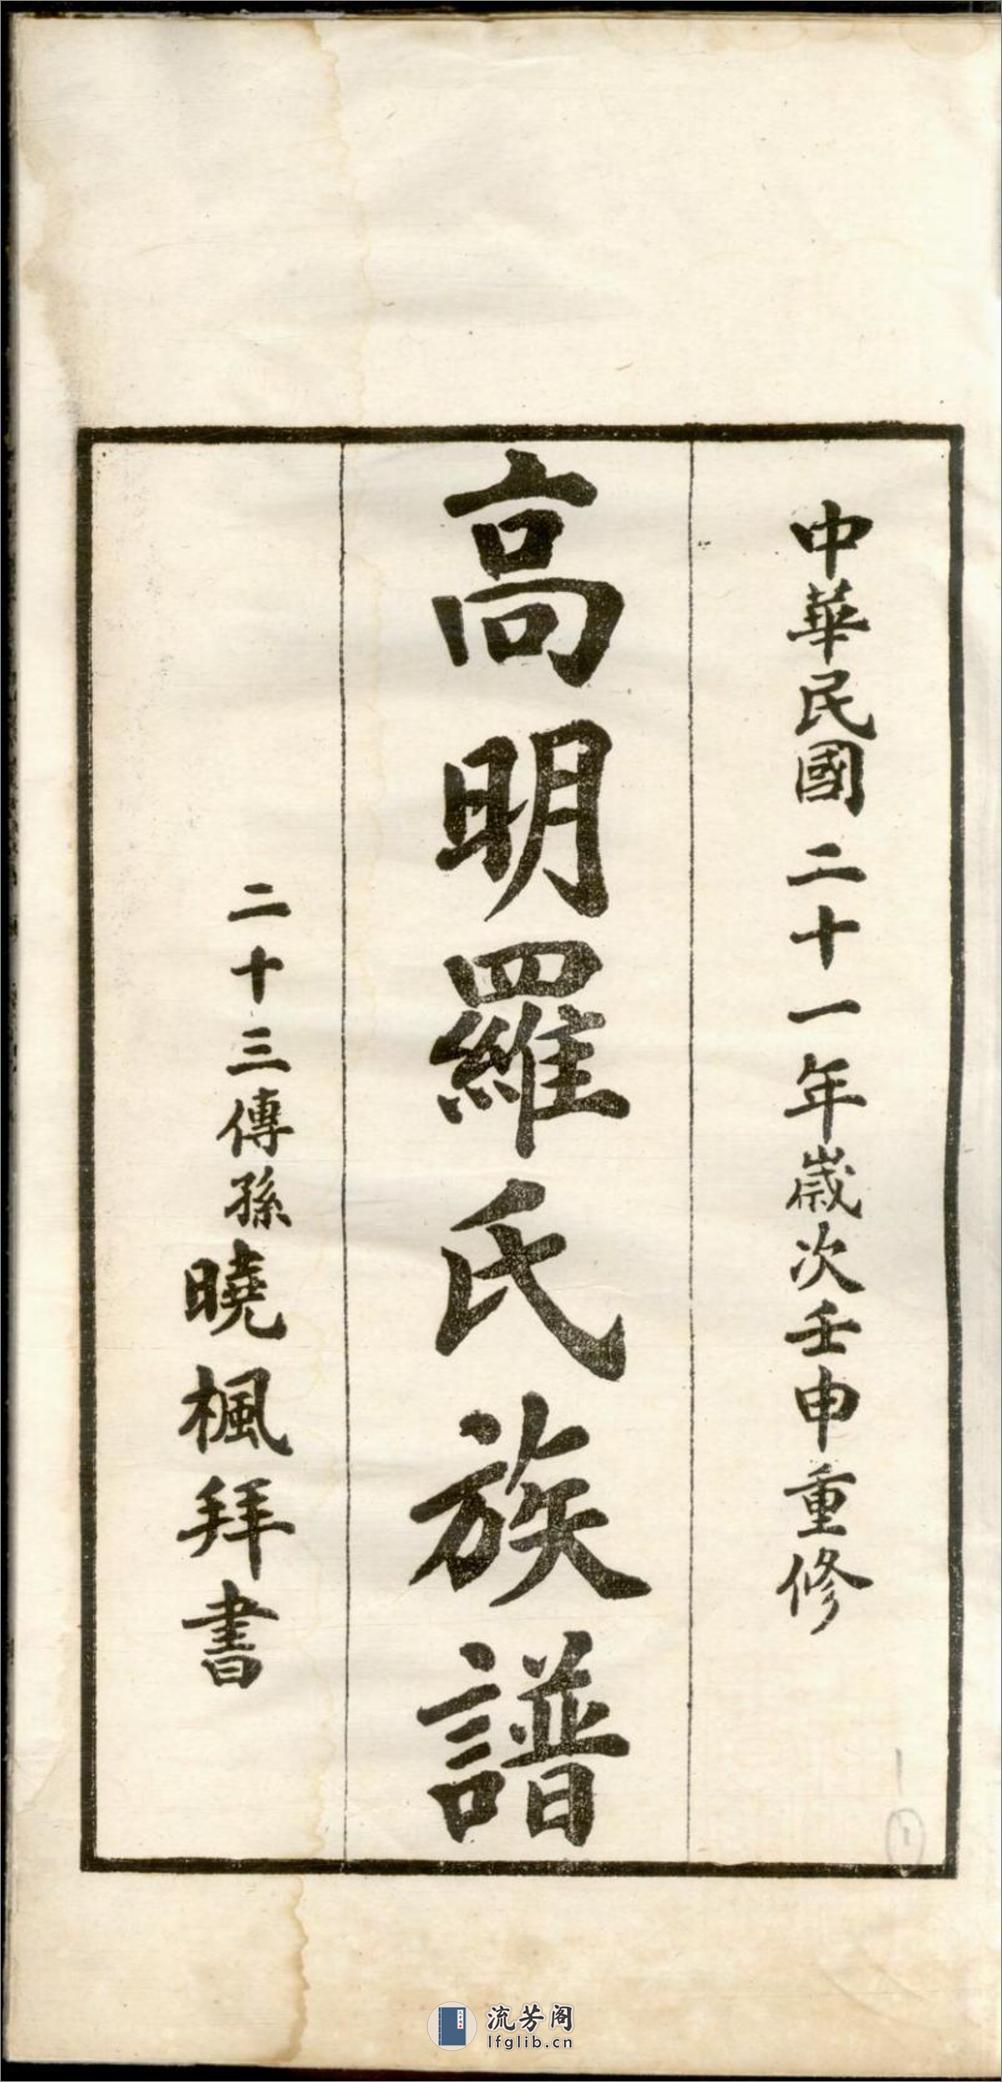 中華民國二十一年歲次壬申重修
高明羅氏族譜
二十三傳孫曉楓拜書
1
流芳阁
lfglib.cn